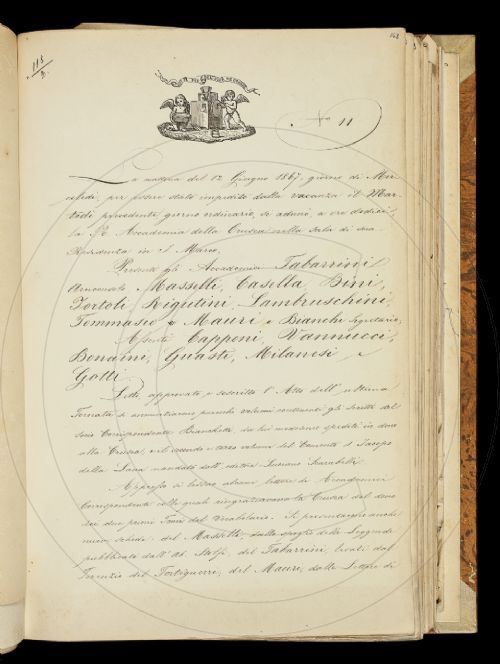 115
N° 11
La mattina del 12 Giugno 1867, giorno di Mer-
coledì, per essere stato impedito dalla vacanza il Mar-
tedì precedente giorno ordinario, si adunò, a ore dodici
la R. Accademia della Crusca nella sala di sua
Residenza in S. Marco.
Presenti gli Accademici Tabarrini
Arciconsolo Masselli, Casella, Bini,
Tortoli, Rigutini, Lambruschini,
Tommaseo e Mauri, e Bianchi Segretario,
Assenti Capponi, Vannucci,
Bonaini, Guasti, Milanesi e
Gotti.
Letto approvato e soscritto l'Atto dell'ultima
Tornata si annunziarono parecchi volumi contenenti gli scritti del
Socio Corrispondente Bianchetti, da lui medesimo spediti in dono
alla Crusca, e il secondo e terzo volume del Comento di Jacopo
della Lana mandato dall'editore Luciano Scarabelli.
Appresso si lessero alcune lettere di Accademici
Corrispondenti colle quali ringraziavano la Crusca del dono
dei due primi Tomi del Vocabolario. Si presentarono anche
nuove schede del Masselli dallo spoglio delle Leggende
pubblicate dall'Ab. del Tabarrini, levati dal
Terenzio del Fortiguerri; del Mauri, dalle Lettere di